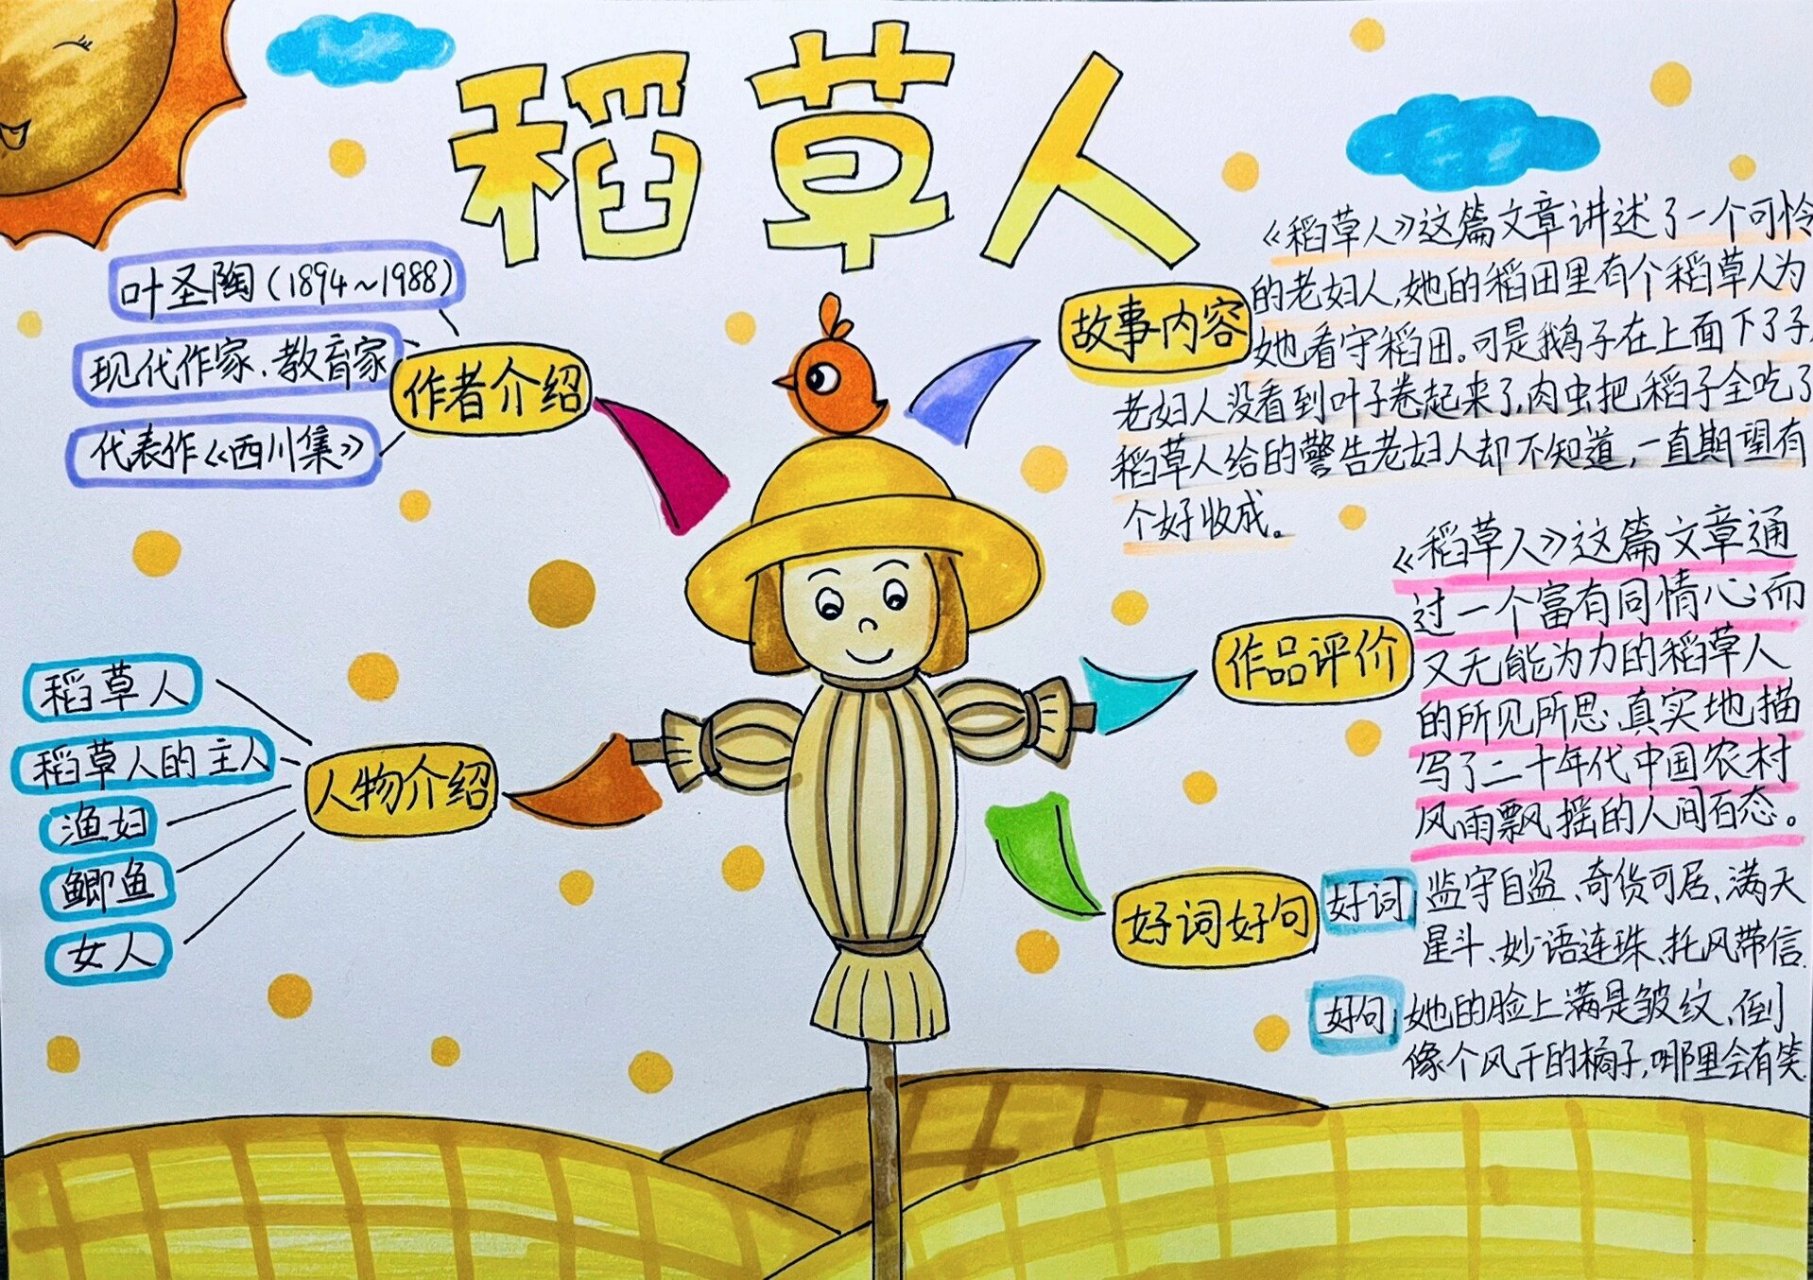 稻草人
叶圣陶(1894~1988)
现代作家、教育家
代表作《西川集》
作者介绍
故事内容
《稻草人》这篇文章讲述了一个可怜
的老妇人,她的稻田里有个稻草人为
她看守稻田。可是蛾子在上面下了子,
老妇人没看到叶子卷起来了,肉虫把稻子全吃了
稻草人给的警告老妇人却不知道,一直期望有
个好收成。
人物介绍
稻草人
稻草人的主人
渔妇
鲫鱼
女人
作品评价
《稻草人》这篇文章通
过一个富有同情心而
又无能为力的稻草人
的所见所思,真实地描
写了二十年代中国农村
风雨飘摇的人间百态。
好词好句
好词
监守自盗、奇货可居、满天
星斗、妙语连珠、托风带信.
好句
她的脸上满是皱纹,倒
像个风干的橘子,哪里会有笑